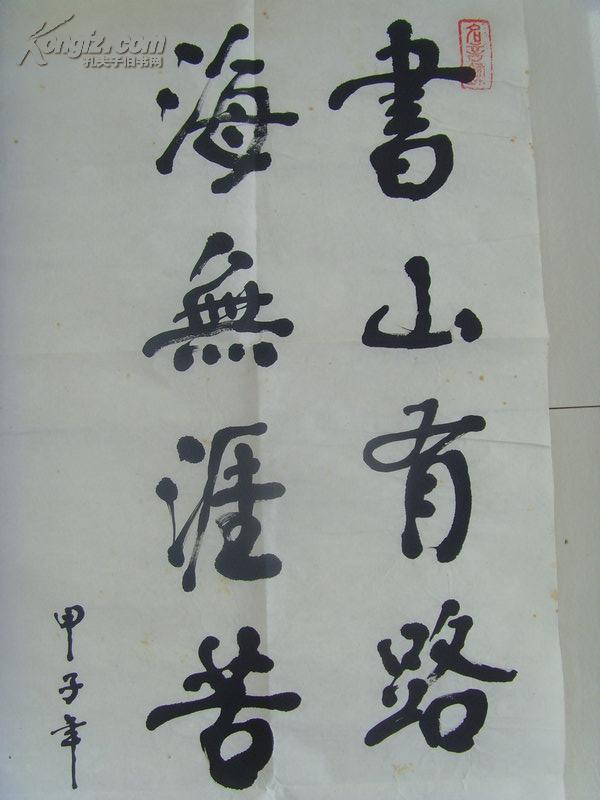 書山有路
海無涯苦
甲子年
Kongfz.com
孔夫子旧书网